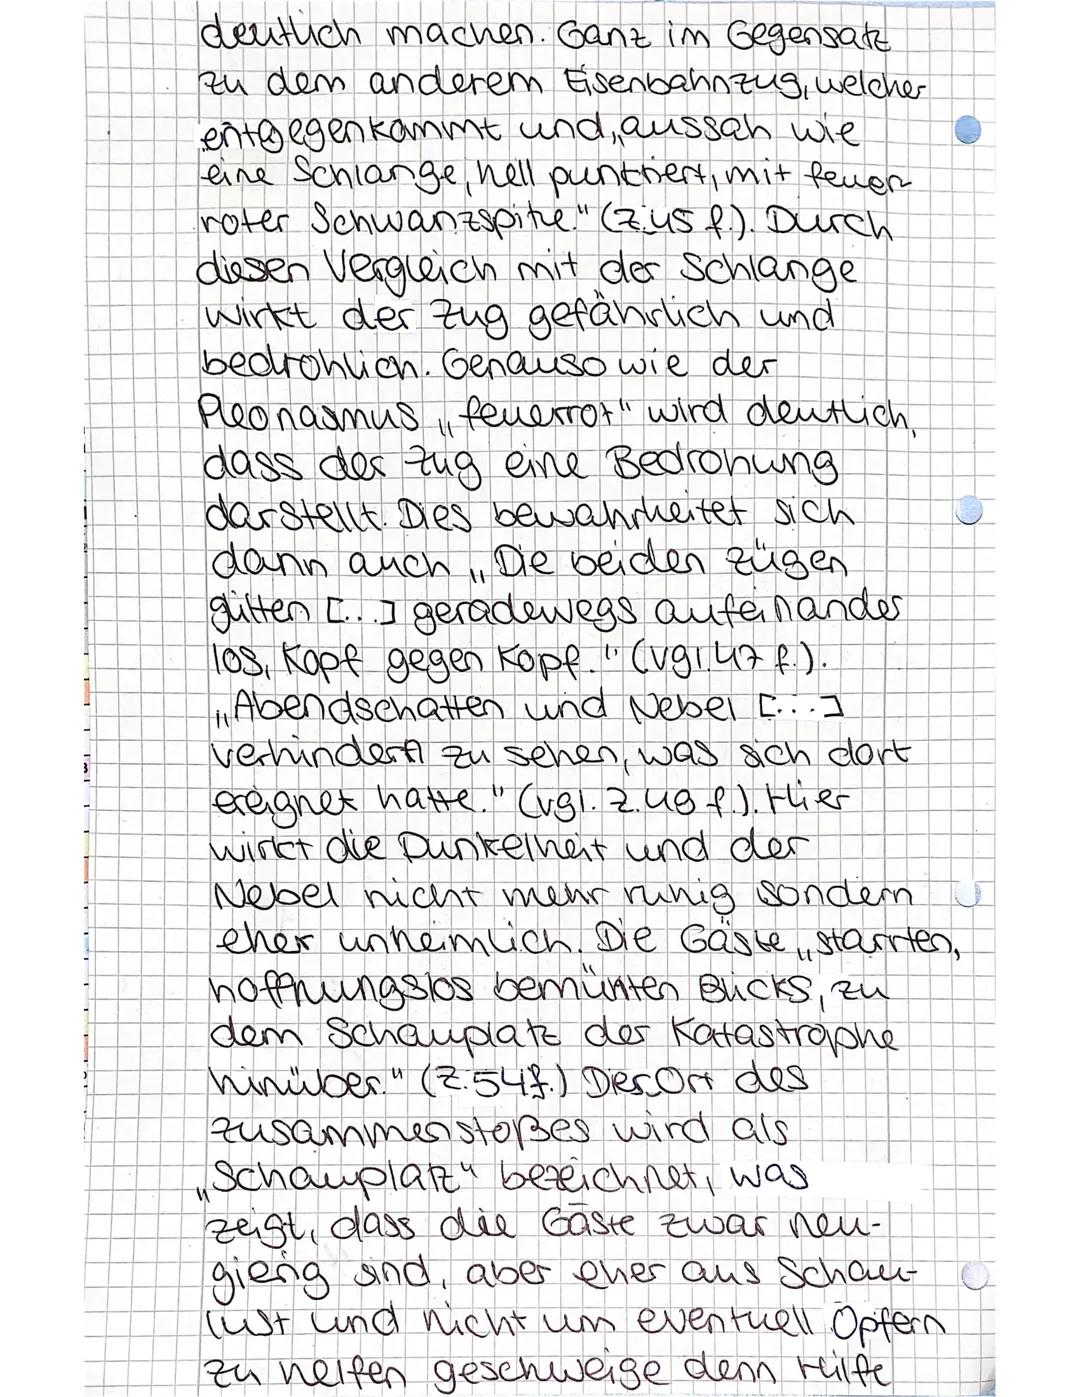 deutlich machen. Ganz im Gegensatz
zu dem anderem Eisenbahnzug, welcher
entgegenkommt und „aussah wie
eine Schlange, hell punktiert, mit feuer-
roter Schwanzspitze." (Z.45 f.). Durch
diesen Vergleich mit der Schlange
wirkt der Zug gefährlich und
bedrohlich. Genauso wie der
Pleonasmus „feuerrot" wird deutlich,
dass der Zug eine Bedrohung
darstellt. Dies bewahrheitet sich
dann auch „Die beiden zügen
glitten [...] geradewegs aufeinander
los, Kopf gegen Kopf." (vgl. 47 f.).
„Abendschatten und Nebel [...]
verhindern zu sehen, was sich dort
ereignet hatte." (vgl. Z.49 f.). Hier
wirkt die Dunkelheit und der
Nebel nicht mehr ruhig sondern
eher unheimlich. Die Gäste „starrten,
hoffnungslos bemühten Blicks, zu
dem Schauplatz der Katastrophe
hinüber." (Z.54f.) Der Ort des
zusammenstoßes wird als
„Schauplatz" bezeichnet, was
zeigt, dass die Gäste zwar neu-
gierig sind, aber eher aus Schau-
lust und nicht um eventuell Opfern
zu helfen geschweige denn Hilfe